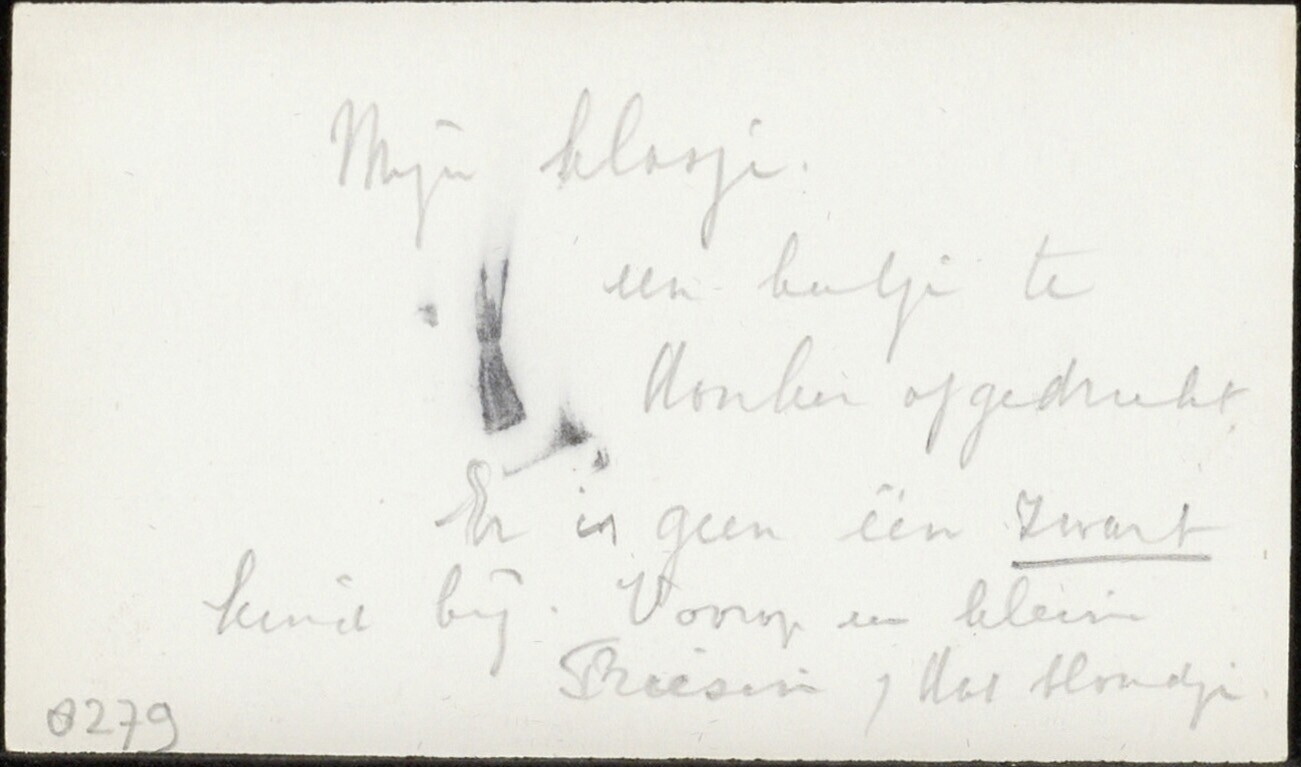 Mijn klasje.
een beetje te
donker afgedrukt.
Er is geen één zwart
kind bij. Voorop een klein
Friesin, dat blondje.
0279